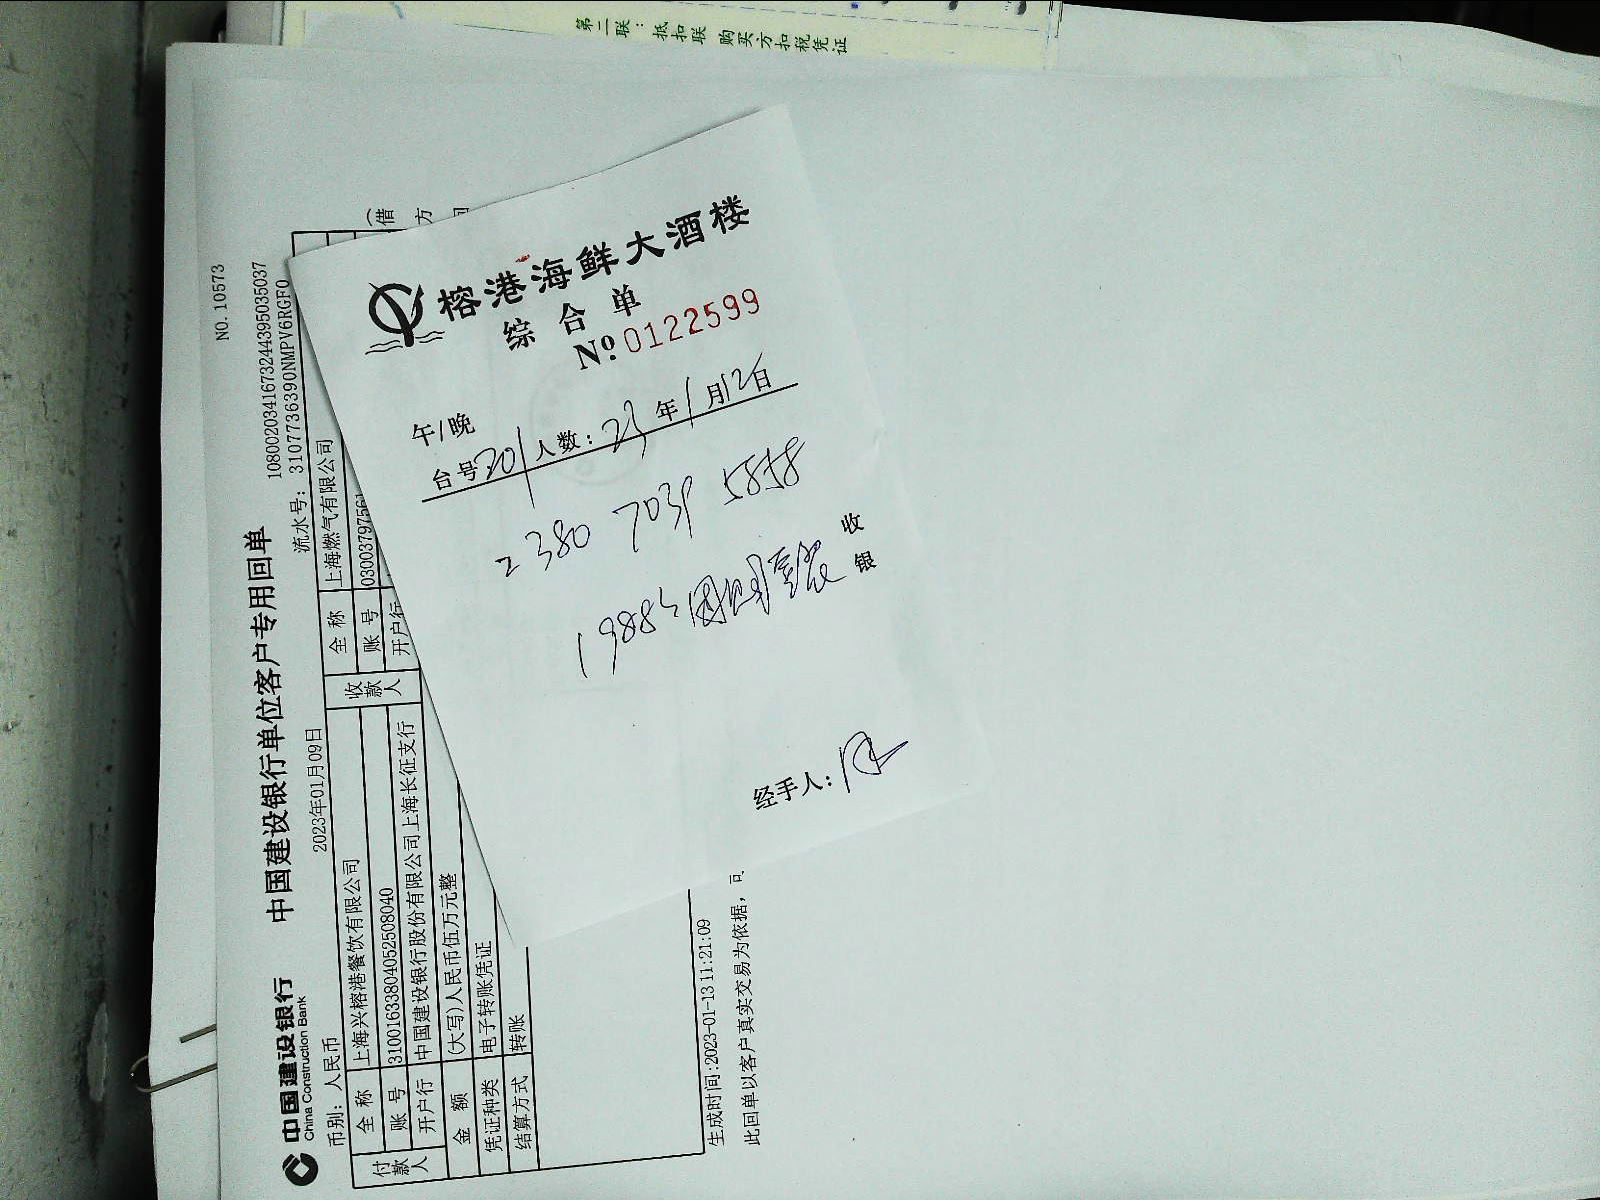 第二联：抵扣联 购买方扣税凭证
榕港海鲜大酒楼
综合单
№ 0122599
午/晚
台号201 人数: 23年1月12日
2380
1988
收银
经手人:
中国建设银行
China Construction Bank
中国建设银行单位客户专用回单
NO.10573
币别: 人民币
2023年01月09日
流水号:
1080020341673244395035037
3107736390NMPV6RGF0
付款人
全称 上海兴榕港餐饮有限公司
账号 31001633804052508040
开户行 中国建设银行股份有限公司上海长征支行
收款人
全称 上海燃气有限公司
账号
开户行
金额 (大写)人民币伍万元整
凭证种类 电子转账凭证
结算方式 转账
(借方
生成时间:2023-01-13 11:21:09
此回单以客户真实交易为依据，